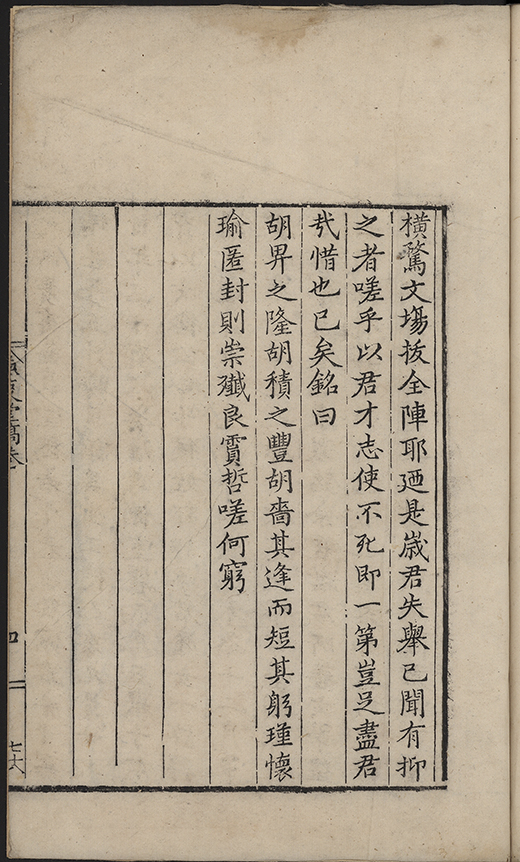 橫騖文塲拔全陣耶廼是嵗君失舉已聞有抑
之者嗟乎以君才志使不死即一第豈足盡君
㢤惜也已矣銘曰
胡畀之隆胡積之豐胡嗇其逢而短其躬瑾懷
瑜匿封則崇殲良霣哲嗟何窮